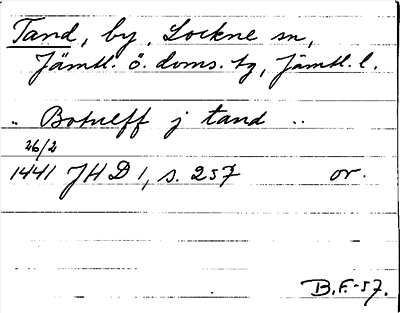 Tand, by, Lockne sn,
Jämtl. ö. doms. tg, Jämtl. l.
.. Botulff j tand ..
26/2
1441 JHD 1, s. 257 or.
B.F.-57.